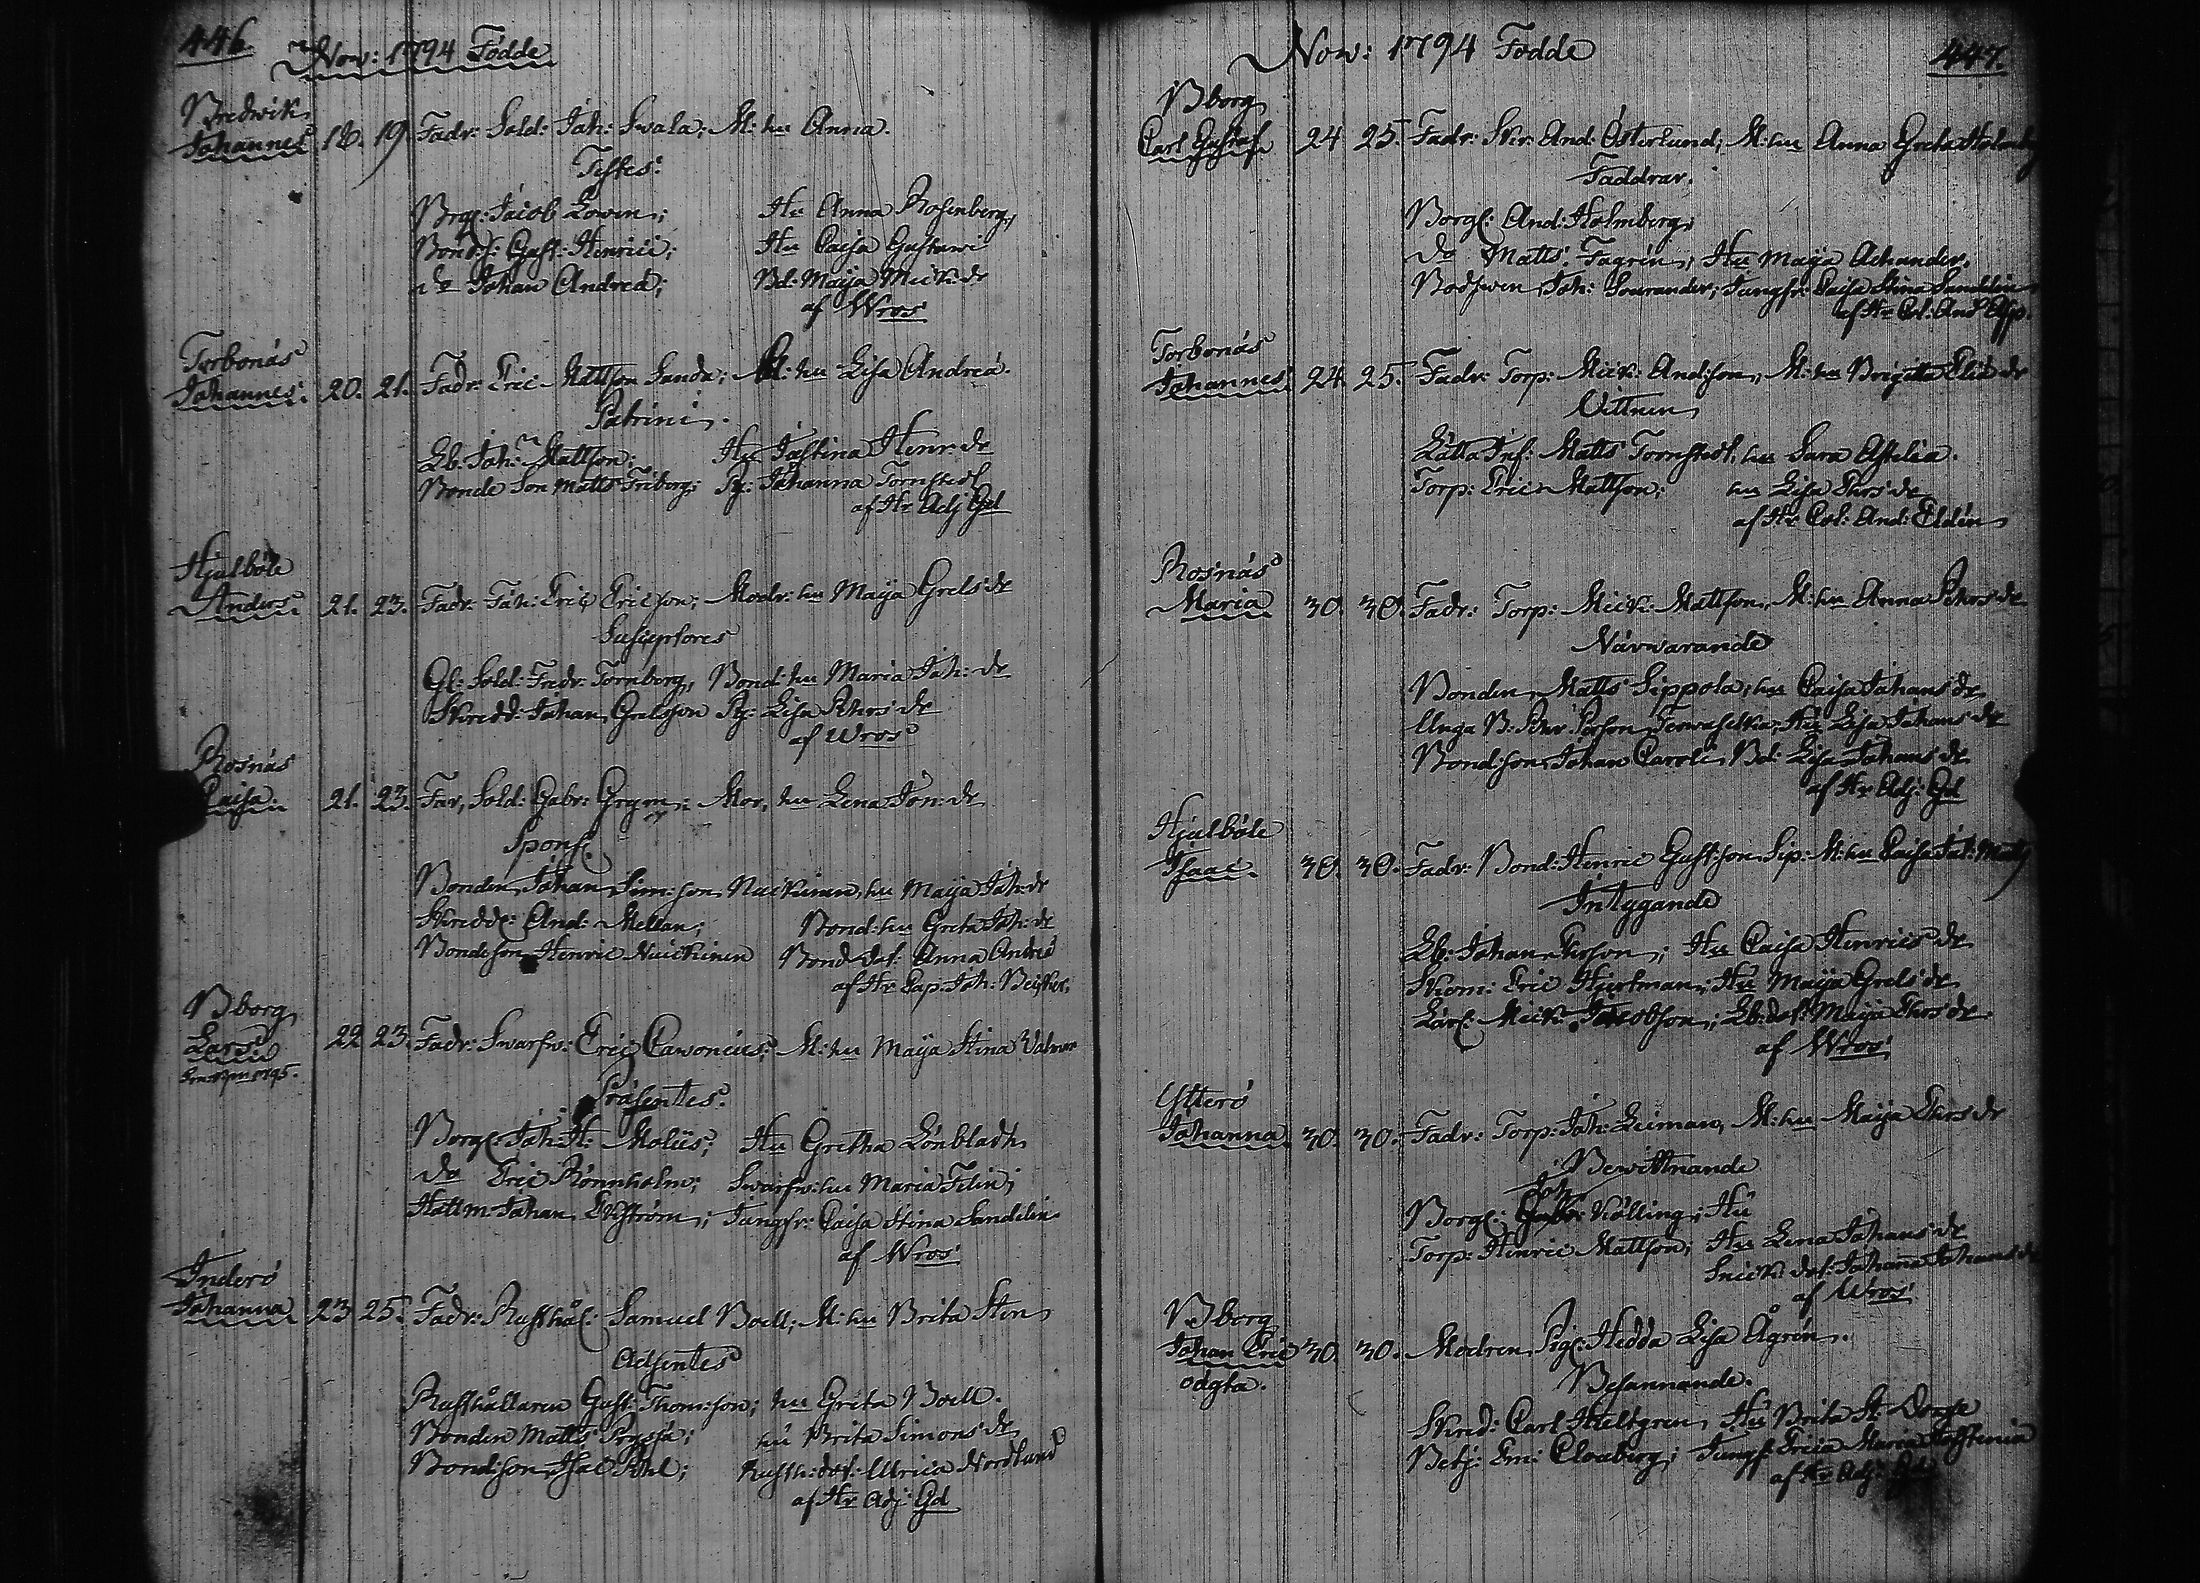 446
Nov: 1794 Födde
Bredwik
Johannes 18. 19. Fadr: Sold: Joh: Swala; M: hu Anna.
Testes:
Brg: Jacob Lowen; Hu Anna Rosenberg,
Bonds: Gust: Henrici; Hu Caisa Gustawi
do Johan Andreæ; Bd: Maija Mick: dr
af Wros
Torbonäs
Johannes. 20. 21. Fadr: Eric Mattson Sanda; M: hu Lisa Andreæ.
Patrini.
Lb: Joh: Mattson: Hu Justina Henr: dr
Bonde Son Matts Friberg; Pg: Johanna Tornstedt
af Hr Adj Gd
Hjulböle
Anders. 21. 23. Fadr: Joh: Eric Ericson; Modr: hu Maija Grels dr
Susceptores
Gl: Sold: Fredr: Tornberg, Bond: hu Maria Joh: dr
Skredd: Johan Grelsson Pg: Lisa Pehrs dr
af Wros
Rosnäs
Caisa. 21. 23. Far, Sold: Gabr: Gregm: Mor, hu Lena Jon: dr
Spons.
Bonden Johan Sim:son Nuickinen, hu Maija Joh: dr
Skredd: And: Mellan; Bond: hu Greta Joh: dr
Bondeson Henric Nuickinen Bond dot: Anna Andreæ
af Hr Cap: Joh: Beiker.
Bborg
Lars 22 23. Fadr: Swarfw: Eric Cawonius; M: hu Maija Stina
Præsentes.
Borg: Joh: H: Moliis; Hu Gretha Lönbladh
do Eric Rönnholm; Swarfw: hu Maria Filin;
Hattm: Johan Ekström; Jungfr: Caisa Stina Sandelin
af Wros
Inderö
Johanna 23 25. Fadr: Rusthål: Samuel Boell; M: hu Brita Sten
Adsentes
Rusthållaren Gust: Thom:son; hu Greta Boell.
Bonden Matts; hu Brita Simons dr
Bondson Isac Pohl; Rusth: dot: Ulrica Nordlund
af Hr Adj: Gd
Nov: 1794 Födde 447.
Bborg
Carl Gustaf 24 25. Fadr: Skr: And: Österlund; M: hu Anna Greta Holmberg
Faddrar.
Borg: And: Holmberg;
do Matts Fagrén; Hu Maija Achander.
Bodswen Joh: Sourander; Jungfr: Caisa Stina Sandelin
af Hr Col: And: Asp.
Torbonäs
Johannes 24. 25. Fadr: Torp: Mick: Andsson; M: hu Brigitta Eliæ dr
Vittnen
Lätta Inf: Matts Tornstedt; hu Sara Astelia.
Torp: Eric Mattson; hu Lisa Ehrs dr
af Hr Col: And: Eldén
Rosnäs
Maria 30. 30. Fadr: Torp: Mick: Mattson, M: hu Anna Pehrs dr
Närwarande
Bonden Matts Sippola; hu Caisa Johans dr
Unga B: Pehr Person; Hu Lisa Johans dr
Bondson Johan Caroli; Bd: Lisa Johans dr
af Hr Adj: Gd
Hjulböle
Isaac. 30. 30. Fadr: Bond: Henric Gust:son Sip: M: hu Caisa
Intygande
Lb: Johan Ersson; Hu Caisa Henrics dr
Skom: Eric Hjertman; Hu Maija Grels dr
Mick: Jacobson; Lb: dot: Maija Ehrs dr
af Wros
Ytterö
Johanna. 30. 30. Fadr: Torp: Joh: Leiman, M: hu Maija Ehrs dr
Bewittnande
Joh
Borg: Kölling; Hu
Torp: Henric Mattson; Hu Lena Johans dr
Snick: dot: Johanna Johans dr
af Wros
Bborg
Johan Eric 30. 30. Modren Pig: Hedda Lisa Ågrén.
odgta. Besannande.
Skred: Carl Hultgren, Hu Brita St:
Betj: Em: Cloaberg; Jungf: Frica Maria
af Hr Adj: Gd